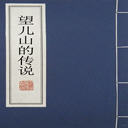 望儿山的传说